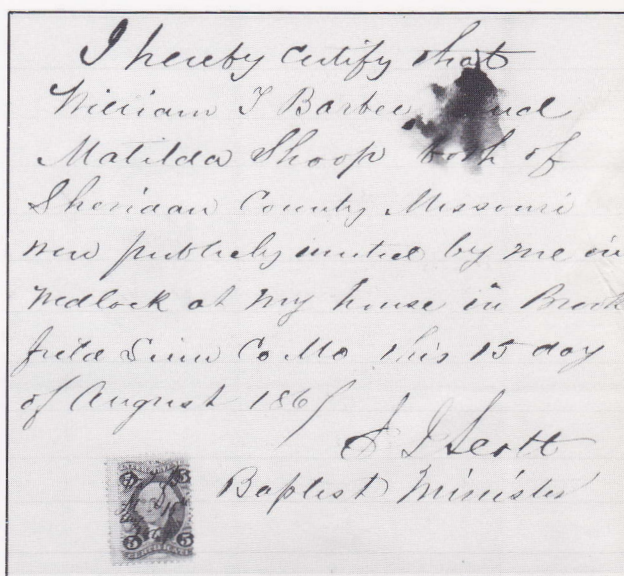 I hereby certify that
William T Barbee and
Matilda Shoop both of
Sheridan County Missouri
were publicly united by me in
Wedlock at my house in Brook
field Linn Co Mo this 15 day
of August 186
Scott
Baptist Minister
5 5